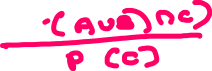 ·(AUB)∩C)
P(C)